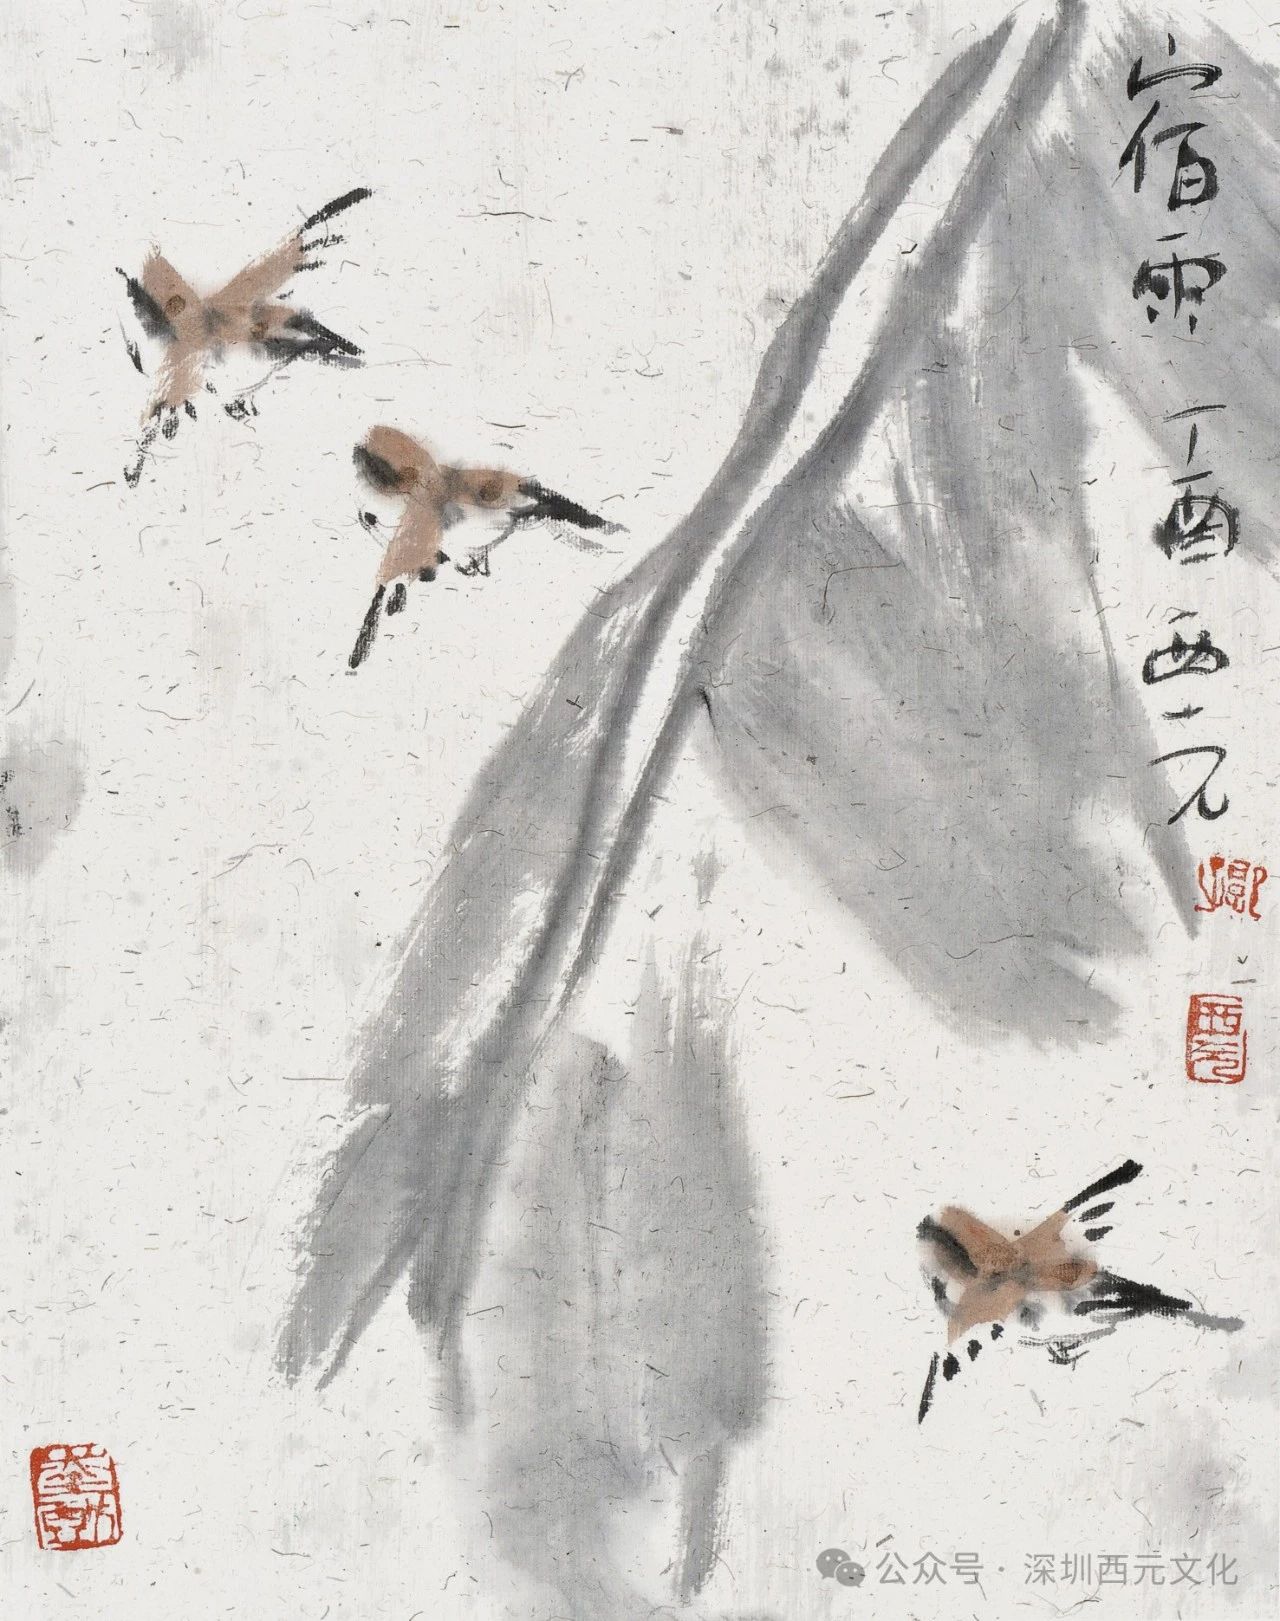 宿雨 丁酉 西元
西元
公众号·深圳西元文化